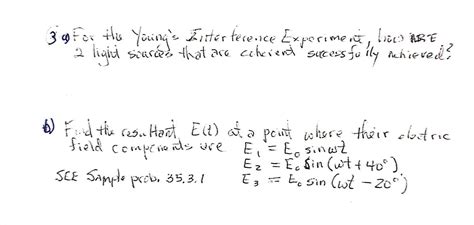 3 a) For the Young's Interference Experiment, how ARE
2 light sources that are coherent successfully achieved?
b) Find the resultant E(t) at a point where their electric
field components are E₁ = E₀ sin ωt
E₂ = E₀ sin (ωt + 40°)
SEE Sample prob. 35.3.1 E₃ = E₀ sin (ωt − 20°)